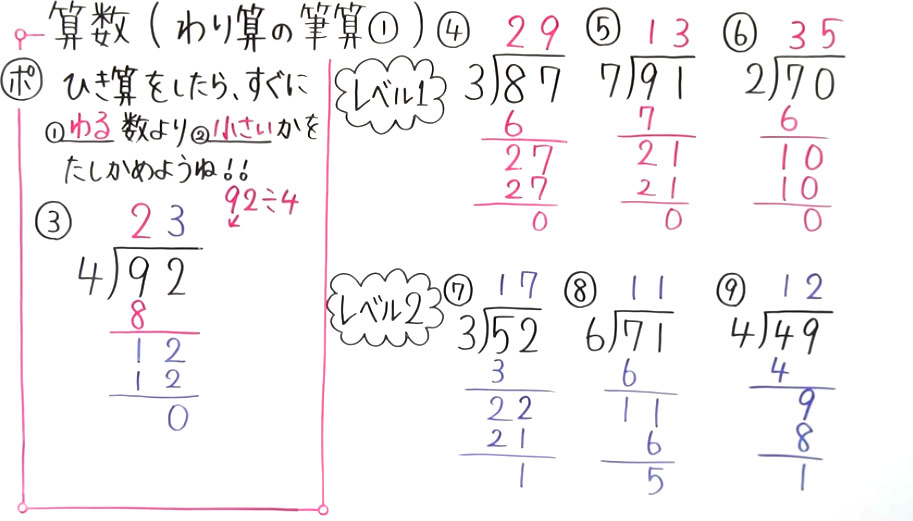 算数(わり算の筆算①)
ポ ひき算をしたら、すぐに
①わる数より②小さいかを
たしかめようね!!
③ 92÷4
23
4)92
8
12
12
0
レベル1
④ 29
3)87
6
27
27
0
⑤ 13
7)91
7
21
21
0
⑥ 35
2)70
6
10
10
0
レベル2
⑦ 17
3)52
3
22
21
1
⑧ 11
6)71
6
11
6
5
⑨ 12
4)49
4
9
8
1